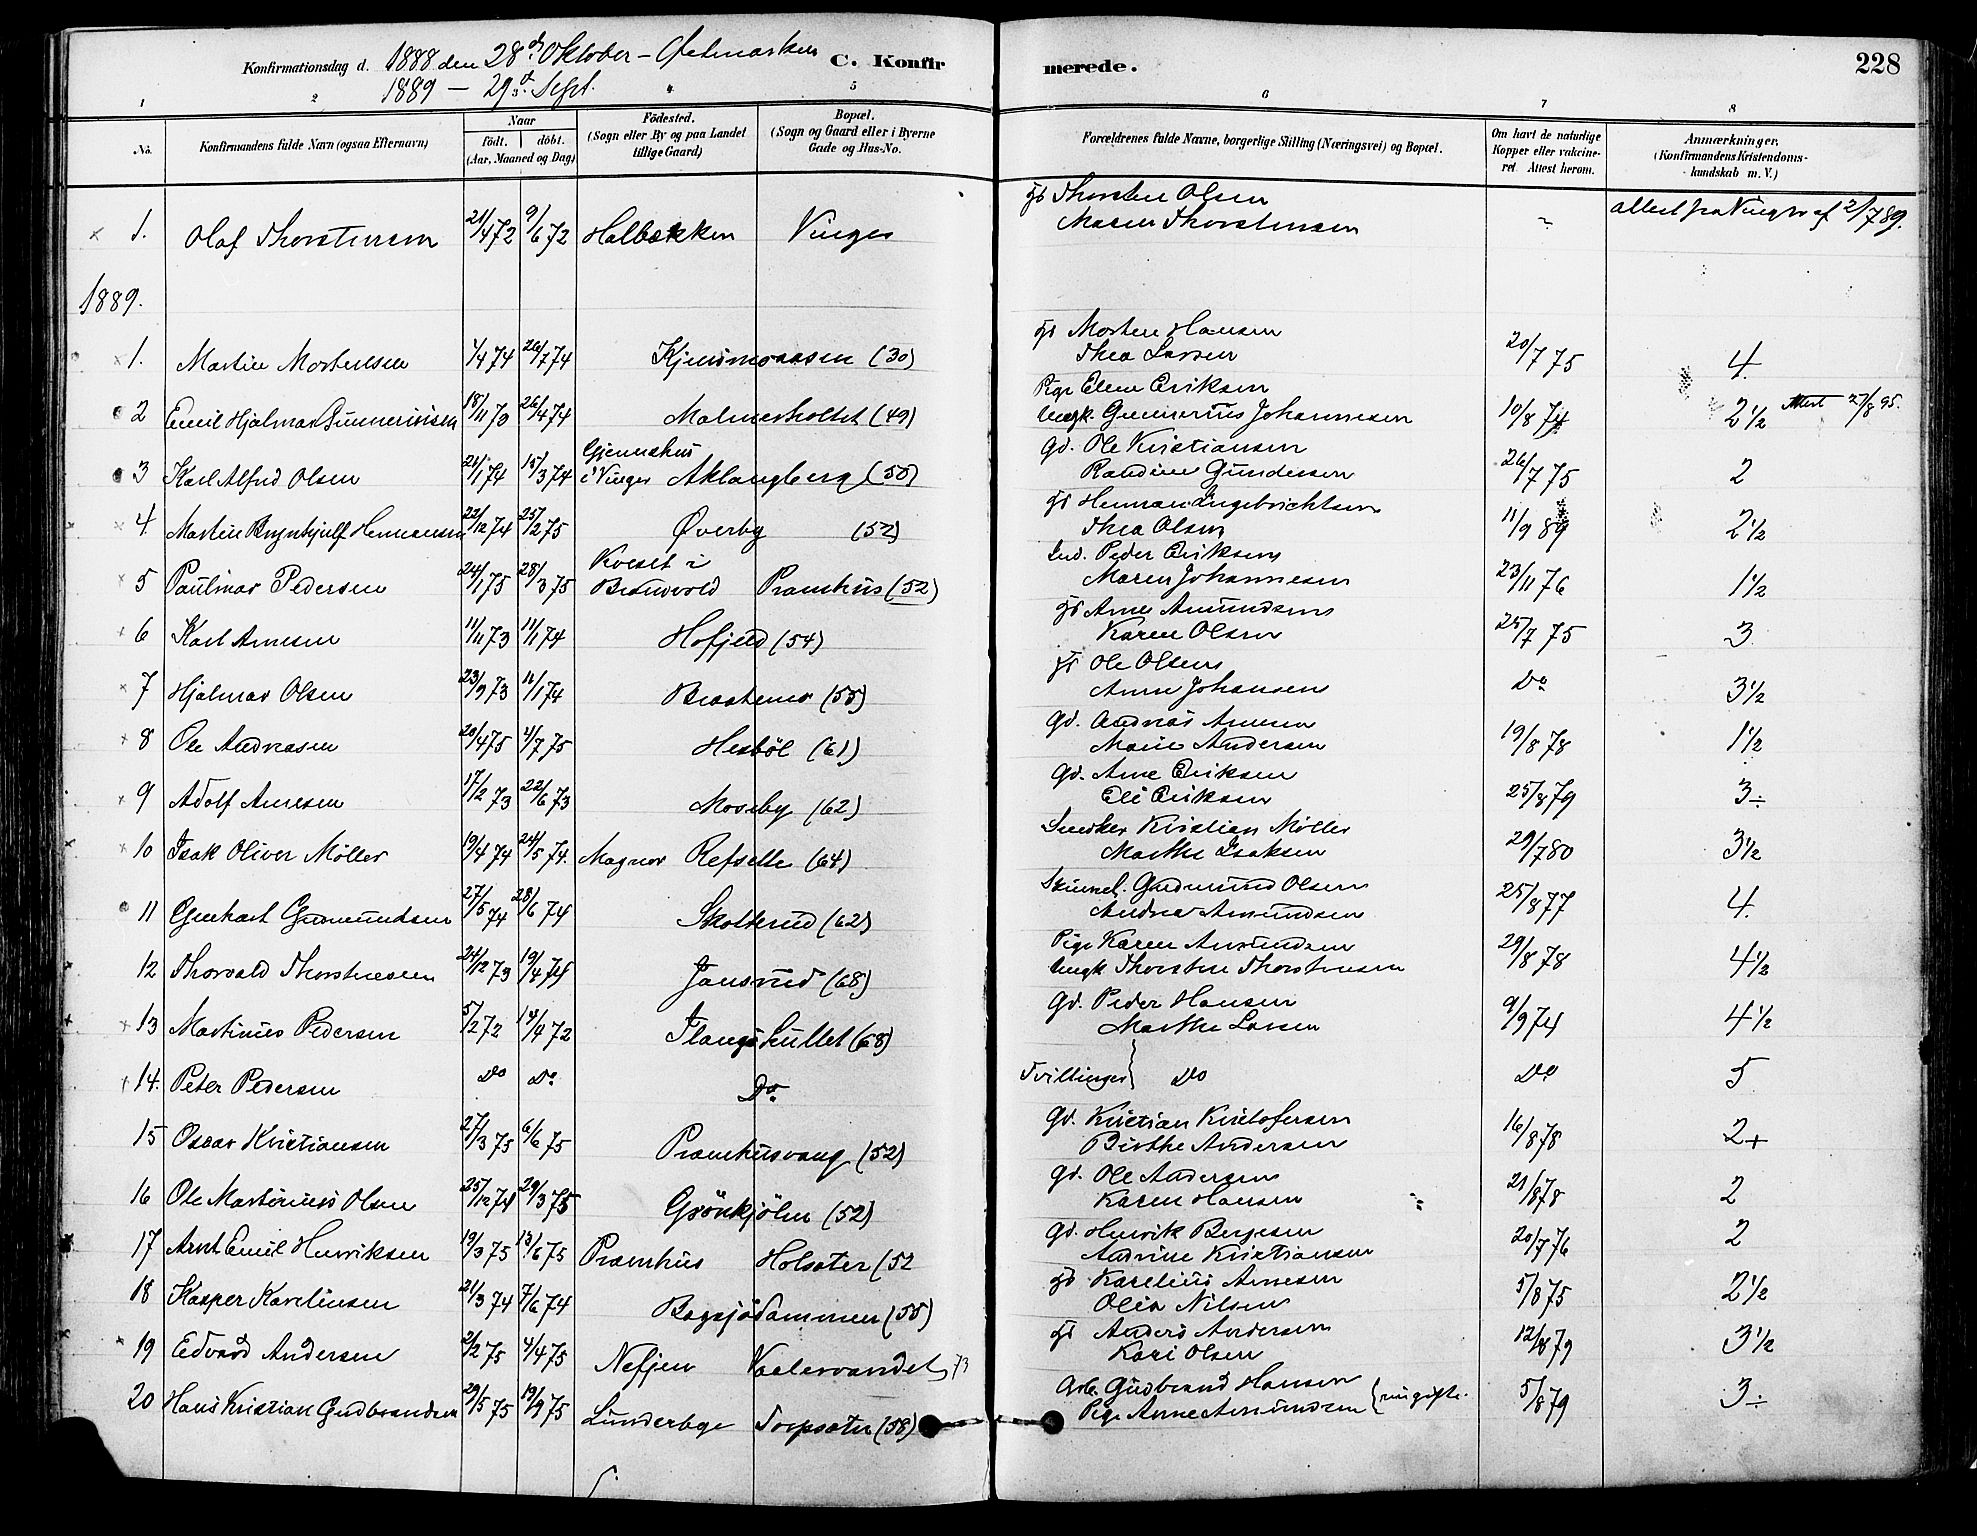 Konfirmationsdag d. 1888 den 28de Oktober – Østmarken C. Konfirmerede. 228
1889 – 29de Sept.
1 2 4 5 6 7 8
No. Konfirmandens fulde Navn (ogsaa Efternavn) Naar Födested. Bopæl. Forældrenes fulde Navne, borgerlige Stilling (Næringsvei) og Bopæl. Om havt de naturlige Anmærkninger,
födt. döbt. (Sogn eller By og paa Landet (Sogn og Gaard eller i Byerne Kopper eller vakcine- (Konfirmandens Kristendoms-
(Aar, Maaned og Dag) tillige Gaard) Gade og Hus-No. ret. Attest herom. kundskab m. V.)
1. Olaf Thorstensen 21/4 72 9/6 72 Holbækken Vinger Thorsten Olsen Maren Thorstensen ~ Attest fra Vinger af 2/7 89.
1889.
1. Martin Mortensen 1/4 74 26/7 74 Kjensmoaasen (30) Morten Hansen Thea Larsen 20/7 75 4.
2 Emil Hjalmar Gunneriusen 18/11 73 26/4 74 Malmerholtet (49) Pige Elene Eriksen Ungk. Gunnerius Johannesen 10/8 74 2 1/2 Attest 27/8 95.
3 Karl Alfred Olsen 21/1 74 15/3 74 Gjennshus i Vinger Aklangberg (50) Gd. Ole Kristiansen Randine Gundersen 26/7 75 2
4. Martin Brynhjulf Hermansen 22/12 74 25/2 75 Øverby (52) Herman Ingebrichtsen Thea Olsen 11/9 89 2 1/2
5 Paulinar Pedersen 24/1 75 28/3 75 Kvesét i Brandvold Pramhus (52) Ind. Peder Eriksen Maren Johannesen 23/11 76 1 1/2
6 Karl Arnesen 11/11 73 11/1 74 Hofjeld (54) Arne Amundsen Karen Olsen 25/7 75 3
7 Hjalmar Olsen 23/9 73 11/1 74 Braatemo (55) Ole Olsen Anne Johansen Do 3 1/2
8 Ole Andreasen 20/4 75 4/7 75 Hesböl (61) Gd. Andreas Arnesen Marie Andersen 19/8 78 1 1/2
9 Adolf Arnesen 17/2 73 22/6 73 Moseby (62) Gd. Arne Eriksen Eli Eriksen 25/8 79 3÷
10 Isak Oliver Möller 19/4 74 24/5 74. Magnor Refsette (64) Snedker Kristian Möller Marthe Isaksen 29/7 80 3 1/2
11 Gerhart Gudmundsen 27/5 74 28/6 74 Skotterud (62) Gudmund Olsen Andrea Amundsen 25/8 77 4.
12 Thorvald Thorstensen 24/12 73 19/4 74 Jansrud (68) Pige Karen Amundsen Ungk Thorsten Thorstensen 29/8 78 4 1/2
13 Martinus Pedersen 5/2 72 14/4 72 Flangshullet (68) Gd. Peder Hansen Marthe Larsen 9/9 74 4 1/2
14. Peter Pedersen Do Do Do. Tvillinger} Do Do 5
15 Oscar Kristiansen 27/3 75 6/6 75 Pramhusvang (52) Gd. Kristian Kristofersen Birthe Andersen 16/8 78 2+
16 Ole Martinius Olsen 25/12 74 29/3 75 Grönkjölen (52) Gd. Ole Andersen Karen Hansen 21/8 78 2
17 Arnt Emil Henriksen 19/3 75 13/6 75 Pramhus Holsæter (52 Gd. Henrik Bergesen Andrine Kristiansen 20/7 76 2
18 Kasper Karelinsen 21/3 74 7/6 74 Bogsjödammen (55) Karelius Arnesen Olea Nilsen 5/8 75 2 1/2
19 Edvard Andersen 2/2 75 4/4 75 Nefjen Vaalervandet 73 Anders Andersen Kari Olsen 12/8 79 3 1/2
20 Hans Kristian Gudbrandsen 29/5 75 19/9 75 Lunderbye Torpsæter (58) Arb. Gudbrand Hansen Pige Anne Amundsen } ungifte. 5/8 79 3÷